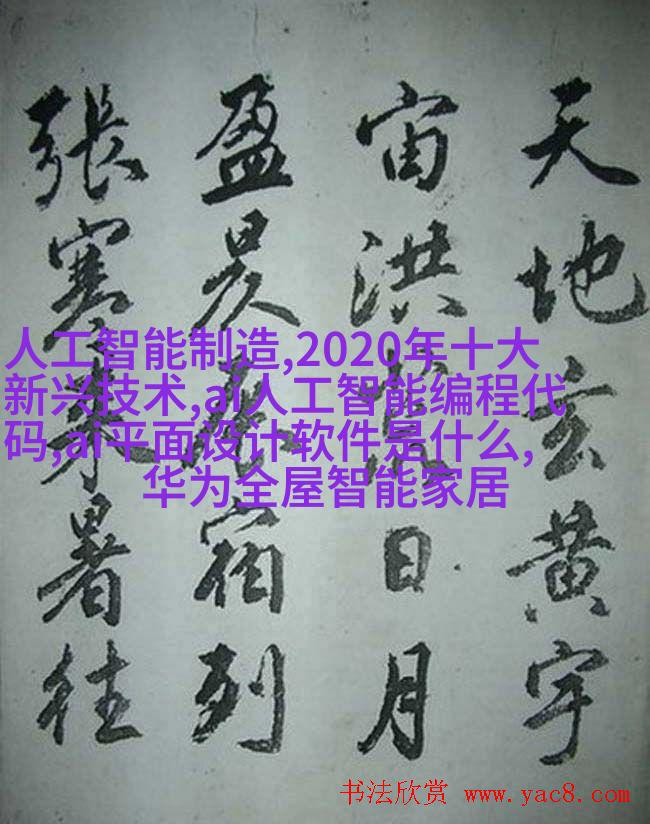 天地玄黄宇
宙洪荒日月
盈昃辰宿列
張寒来暑往
人工智能制造,2020年十大
新兴技术,ai人工智能编程代
码,ai平面设计软件是什么,
华为全屋智能家居
书法欣赏 www.yac8.com